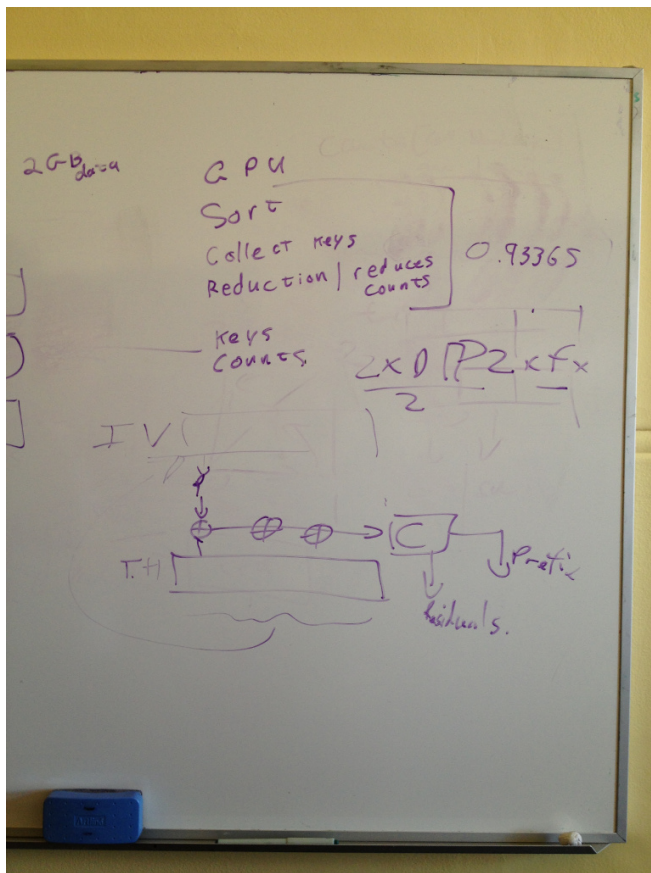 2GB data
GPU
Sort
Collect keys
Reduction / reduces
counts
0.93365
keys
counts
IV
T.H
C
Prefix
Residuals.